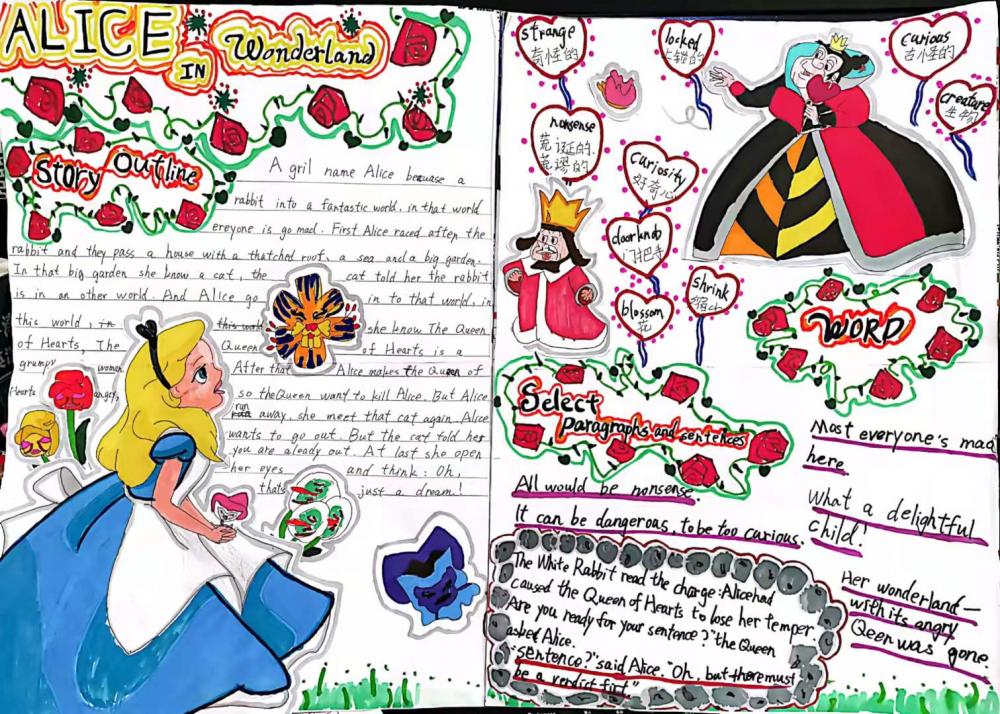 ALICE
IN
Wonderland
Story Outline
A gril name Alice because a
rabbit into a fantastic world. in that world
ereyone is go mad. First Alice raced after the
rabbit and they pass a house with a thatched roof, a sea and a big garden.
In that big garden she know a cat, the cat told her the rabbit
is in an other world. And Alice go in to that world. in
this world, in this world she know The Queen
of Hearts, The Queen of Hearts is a
grumpy woman. After that Alice makes the Queen of
Hearts angry, so the Queen want to kill Alice. But Alice
run away, she meet that cat again. Alice
wants to go out. But the cat told her
you are aleady out. At last she open
her eyes and think: Oh,
thats just a dream!
strange
奇怪的
locked
上锁的
curious
古怪的
creature
生物
nonsense
荒诞的.
荒谬的
curiosity
好奇心
doorknob
门把手
blossom
花
shrink
缩小
WORD
Select
Paragraphs and sentences
All would be nonsense.
It can be dangerous to be too curious.
Most everyone's mad
here.
What a delightful
Child!
Her wonderland—
with its angry
Qeen was gone.
The White Rabbit read the charge: Alice had
caused the Queen of Hearts to lose her temper.
Are you ready for your sentence?" the Queen
asked Alice.
"sentence?" said Alice. "Oh, but there must
be a verdict first."